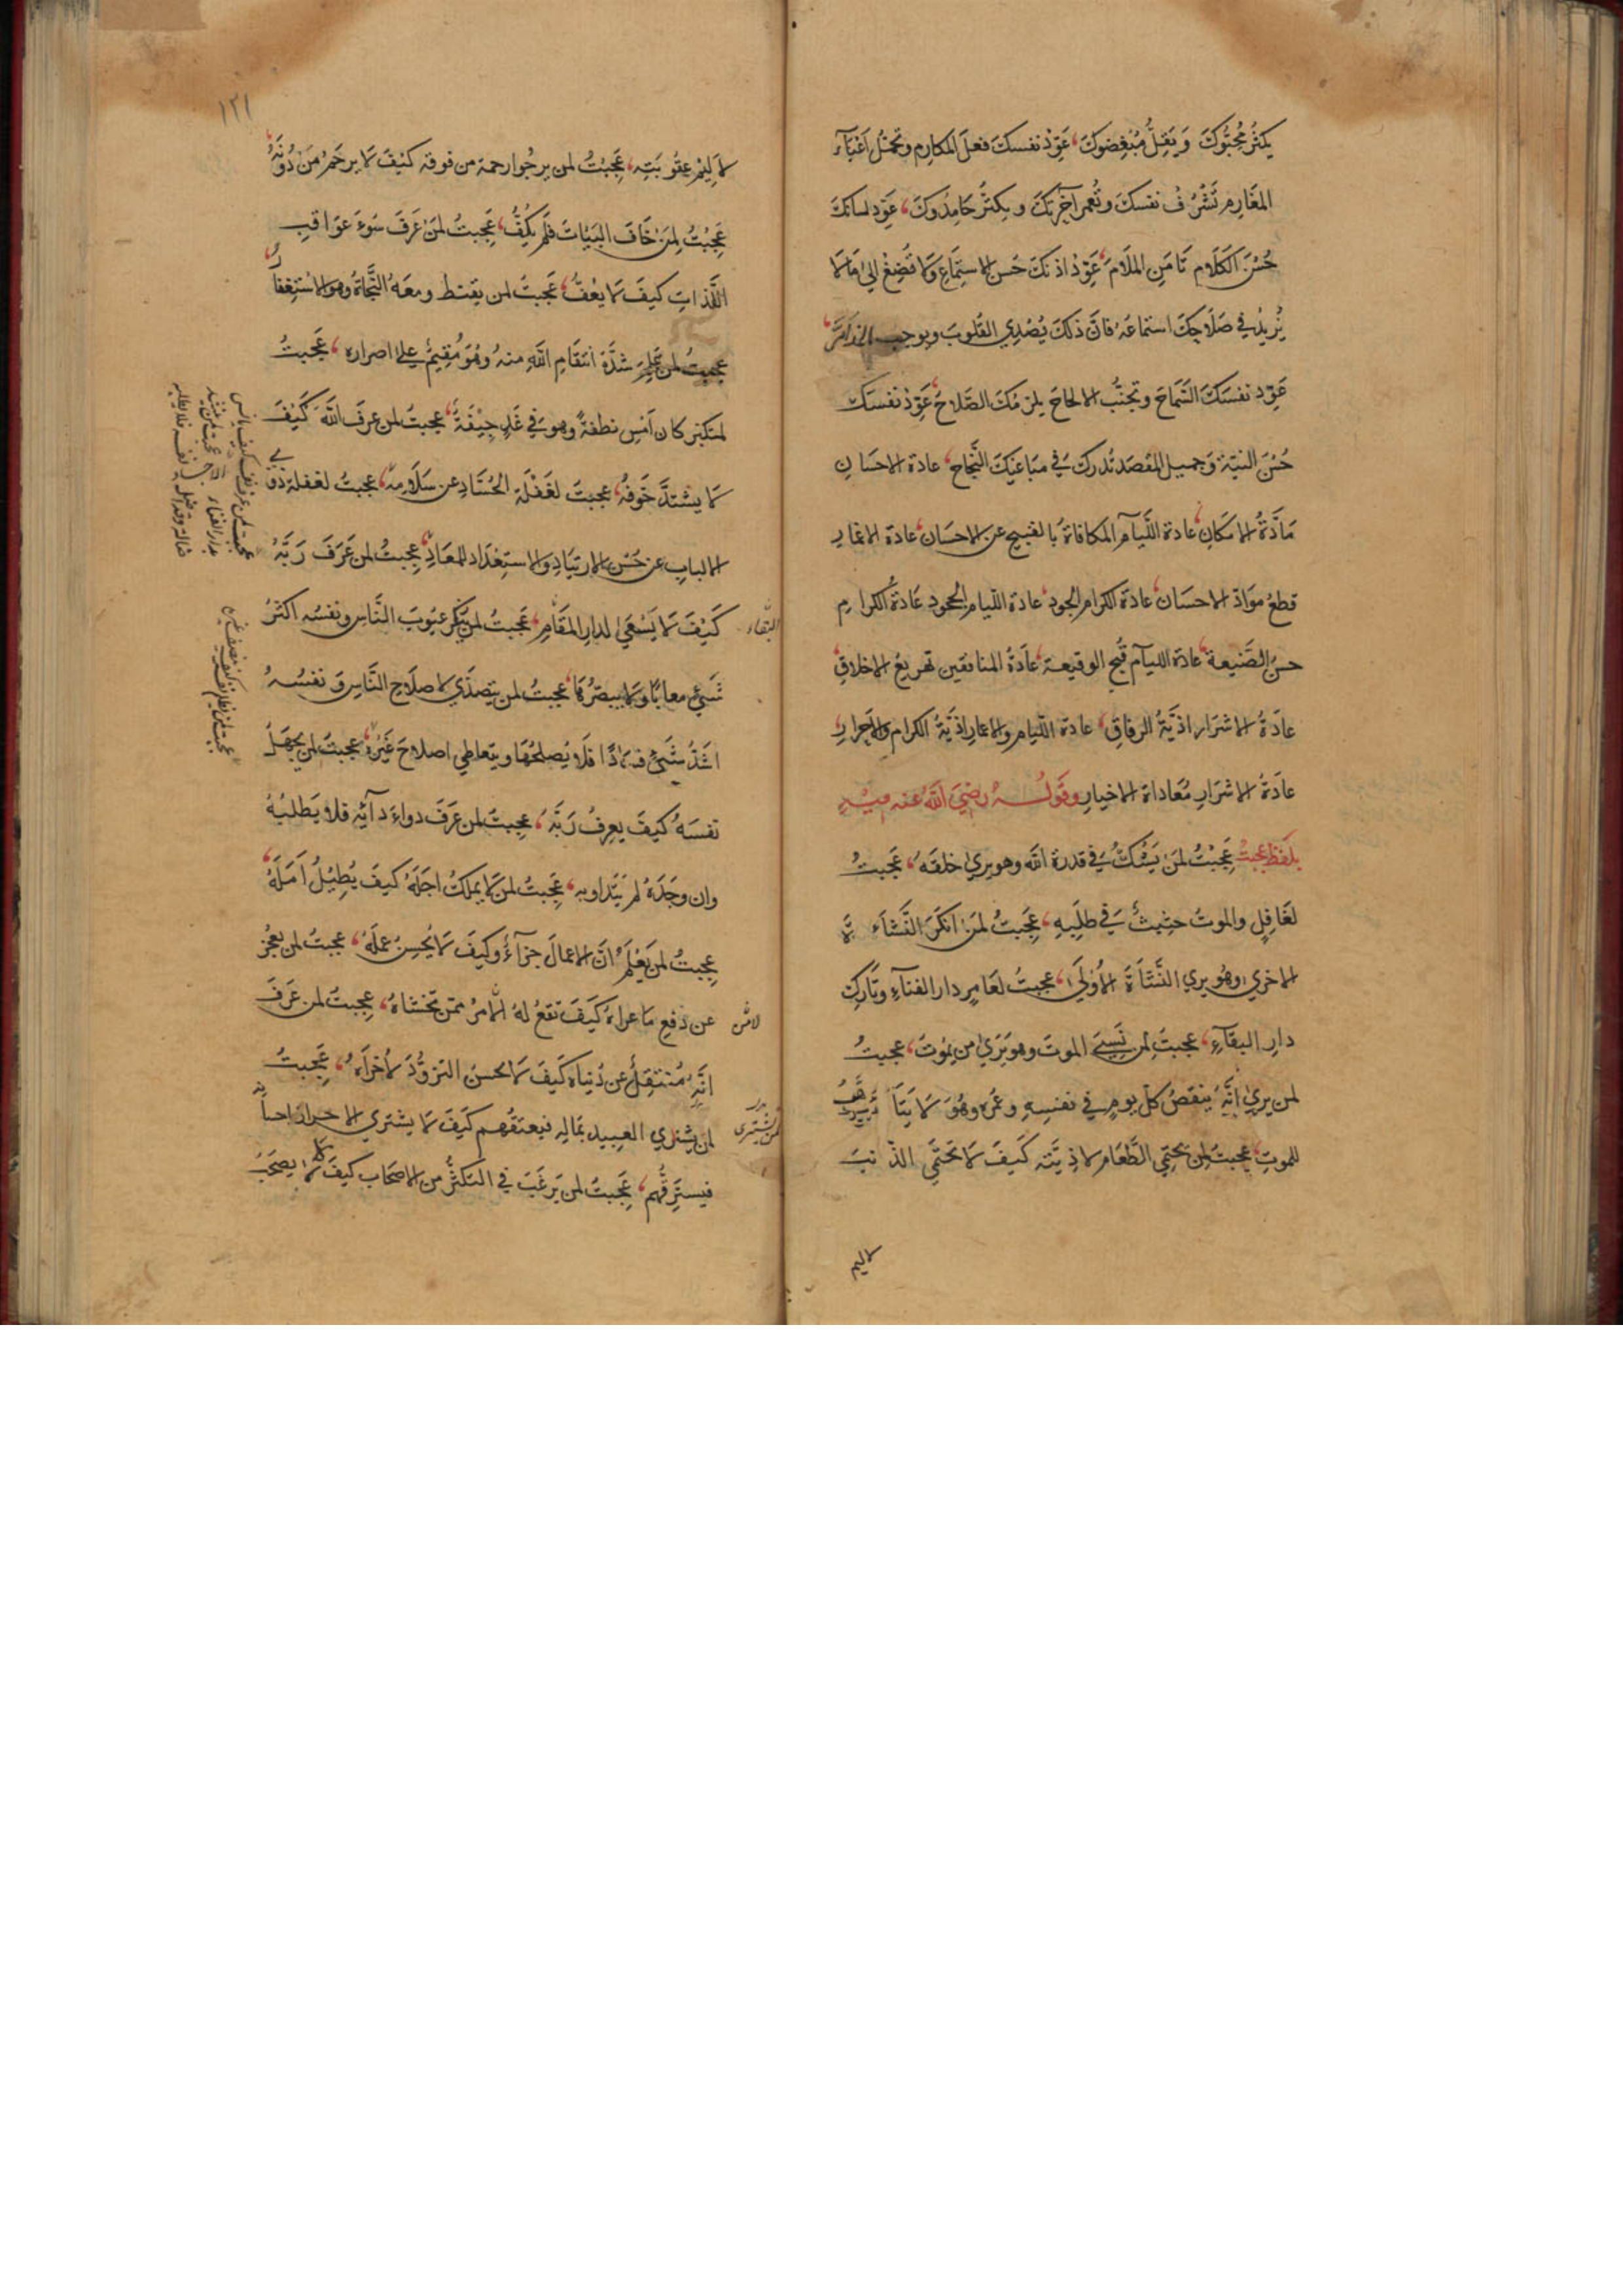 يكثُر مُحِبُّوكَ وَيَقِلُّ مُبْغِضوكَ، عَوِّدْ نفسكَ فعلَ المكارِم وتحمّل اَعْبَآءَ
المغَارِم تَشْرُف نفسكَ وتُعمر آخِرتكَ ويكثرُ حَامِدُوكَ، عَوِّد لسانكَ
حُسْنَ الكَلَام تَامَنِ الملَامَ، عَوِّدْ اذنكَ حُسن الاستِمَاعِ وَلَا تُصْغ الىٰ مَا لَا
يُزيدُ في صَلَاحِكَ استماعَهُ فانَّ ذلكَ يُصْدِي القلوبَ ويوجب المذَامَّ،
عَوِّد نفسَكَ السَّماحَ وتجنُّب الالحاحَ يلزمكَ الصَّلاحُ، عَوِّدْ نفسَكَ
حُسْنَ النيّة وَجميل المقصَد تُدرك فِي مَباغيكَ النَّجاحَ، عادة الاحسَانِ
مَادَّةُ الامكَانِ، عادة اللّيَآم المكافاةُ بالقبيح عن الاحسَان، عادة الاغمارِ
قطعُ موَادّ الاحسَان، عَادة الكرام الجود، عادة اللّيام الجحود، عَادةُ الكرامِ
حسنُ الصَّنيعة، عادَة الليآم قُبح الوقيعة، عَادَةُ المنافقين تهريعُ الاخلاقِ،
عادَةُ الاشرَار اذيَّةُ الرفاقِ، عادة اللّيام والاغمار اذيَّةُ الكرام والاحرارِ،
عادَةُ الاشرَارِ مُعَاداة الاخيارِ وَقَولُهُ رضيَ اللهُ عنه فيهِ
بلفظ عجبتُ عَجِبْتُ لمَنْ يَشُكُّ فِي قدرة الله وهو يرىٰ خلقَهُ، عَجبتُ
لغَافِلٍ والموتُ حثِيثٌ فِي طلَبِهِ، عَجِبَتُ لمَنْ انكَرَ النَّشاَءَةَ
الاخري وهُو يري النَّشاَةَ الاُولَىٰ، عجبتُ لعَامِرِ دار الفنَآءِ وتَارِكِ
دارِ البقَآءِ، عجبتُ لمن نَسِيَ الموتَ وهو يَرَىٰ من يموت، عجبتُ
لمن يرىٰ انَّهُ ينقصُ كلّ يومٍ في نفسِهِ وعُمره وهُوَ لَا يتَأَهَّبُ
للموتِ، عجبتُ لمن يحتمِي الطَّعَام لاذِيَّته كَيفَ لَا يحتَمِي الذّنبَ
لاليم
١٢١
لاَلِيْم عقُوبَتِه، عَجِبْتُ لمن يرجُوا رحمة من فوقه كَيْفَ لَا يرحَمُ مَنْ دُونَهُ،
عَجِبْتُ لِمَنْ خَافَ البيَاتَ فلَم يكُفَّ، عَجِبتُ لمَنْ عَرَفَ سُوءَ عَوَاقبِ
اللّذاتِ كيفَ لَا يعُفُّ، عَجبتُ لمن يقنط ومعَهُ النَّجاةُ وهو الاستغفارُ،
عجبتُ لمن عَلِمَ شدّة انتقَامِ اللهِ منهُ وهُوَ مُقِيمٌ على اصراره، عَجبتُ
لمتكبّر كان اَمْسِ نطفةً وهو في غَدٍ جِيْفَةٌ، عجبتُ لمن عرفَ اللهَ كَيْفَ
لَا يشتدُّ خَوفُهُ، عجبتُ لغَفْلة الحُسّادِ عن سَلَامة، عجبتُ لغفلة ذوي
الالبابِ عن حُسْن الارتيَادِ والاستِعْدَاد للمعَادِ، عَجِبتُ لمن عَرَفَ رَبَّهُ
كَيْفَ لَا يَسْعَىٰ لدارِ المقَامِ، عَجبتُ لمن يُنكر عيُوبَ النَّاسِ ونفسُه اكثَرُ
البقاء
شَيءٍ معَابًا وَلَا يبصرُهَا، عَجبتُ لمن يتصَدّي لاصلَاحِ النَّاسِ وَ نفسُهُ
اشدُّ شيءٍ فسادًا فلَا يُصلحُهَا ويتعاطي اصلاحَ غَيْرِهِ، عجبتُ لمن يجهَلُ
نفسَهُ كَيفَ يعرِفُ رَبَّهُ، عجِبتُ لمن عَرَفَ دواءَ دآئِه فلا يَطلبُهُ
وان وجَدَهُ لم يَتداو به، عَجِبتُ لمن لَا يملكُ اجَلَهُ كيفَ يُطِيْلُ اَمَلَهُ،
عجِبتُ لمن يَعْلَمُ انَّ الاعمالَ جزآءٌ وكَيفَ لَا يُحسِنُ عملَهُ، عجبتُ لمن يعجزُ
عن دَفعِ مَا عراهُ كَيفَ تقعُ لهُ الامرُ ممّن يخشاهُ، عجِبتُ لمن عَرَفَ
انَّهُ مُنتقِلٌ عن دُنياه كَيفَ لَا يحسن التزوُّدَ لاُخراَهُ، عَجبتُ
لمن يشتري العبيد بمَالِه فيعتقُهم كَيفَ لَا يشتري الاحرارَ باحسَانِهِ
لمن يشترى
فيسترِقُّهم، عَجبتُ لمن يَرغَبُ في التكثُّر من الاصحَاب كيفَ لَا يصحَبُ
عجبت لمن عرف نفسه كيف يانس
بدار الفناء
عجبت لمن ينشد
ضالته وقد اضل نفسه فلا يطلبها
عجبت لمن يظلم نفسه كيف ينصف غيره